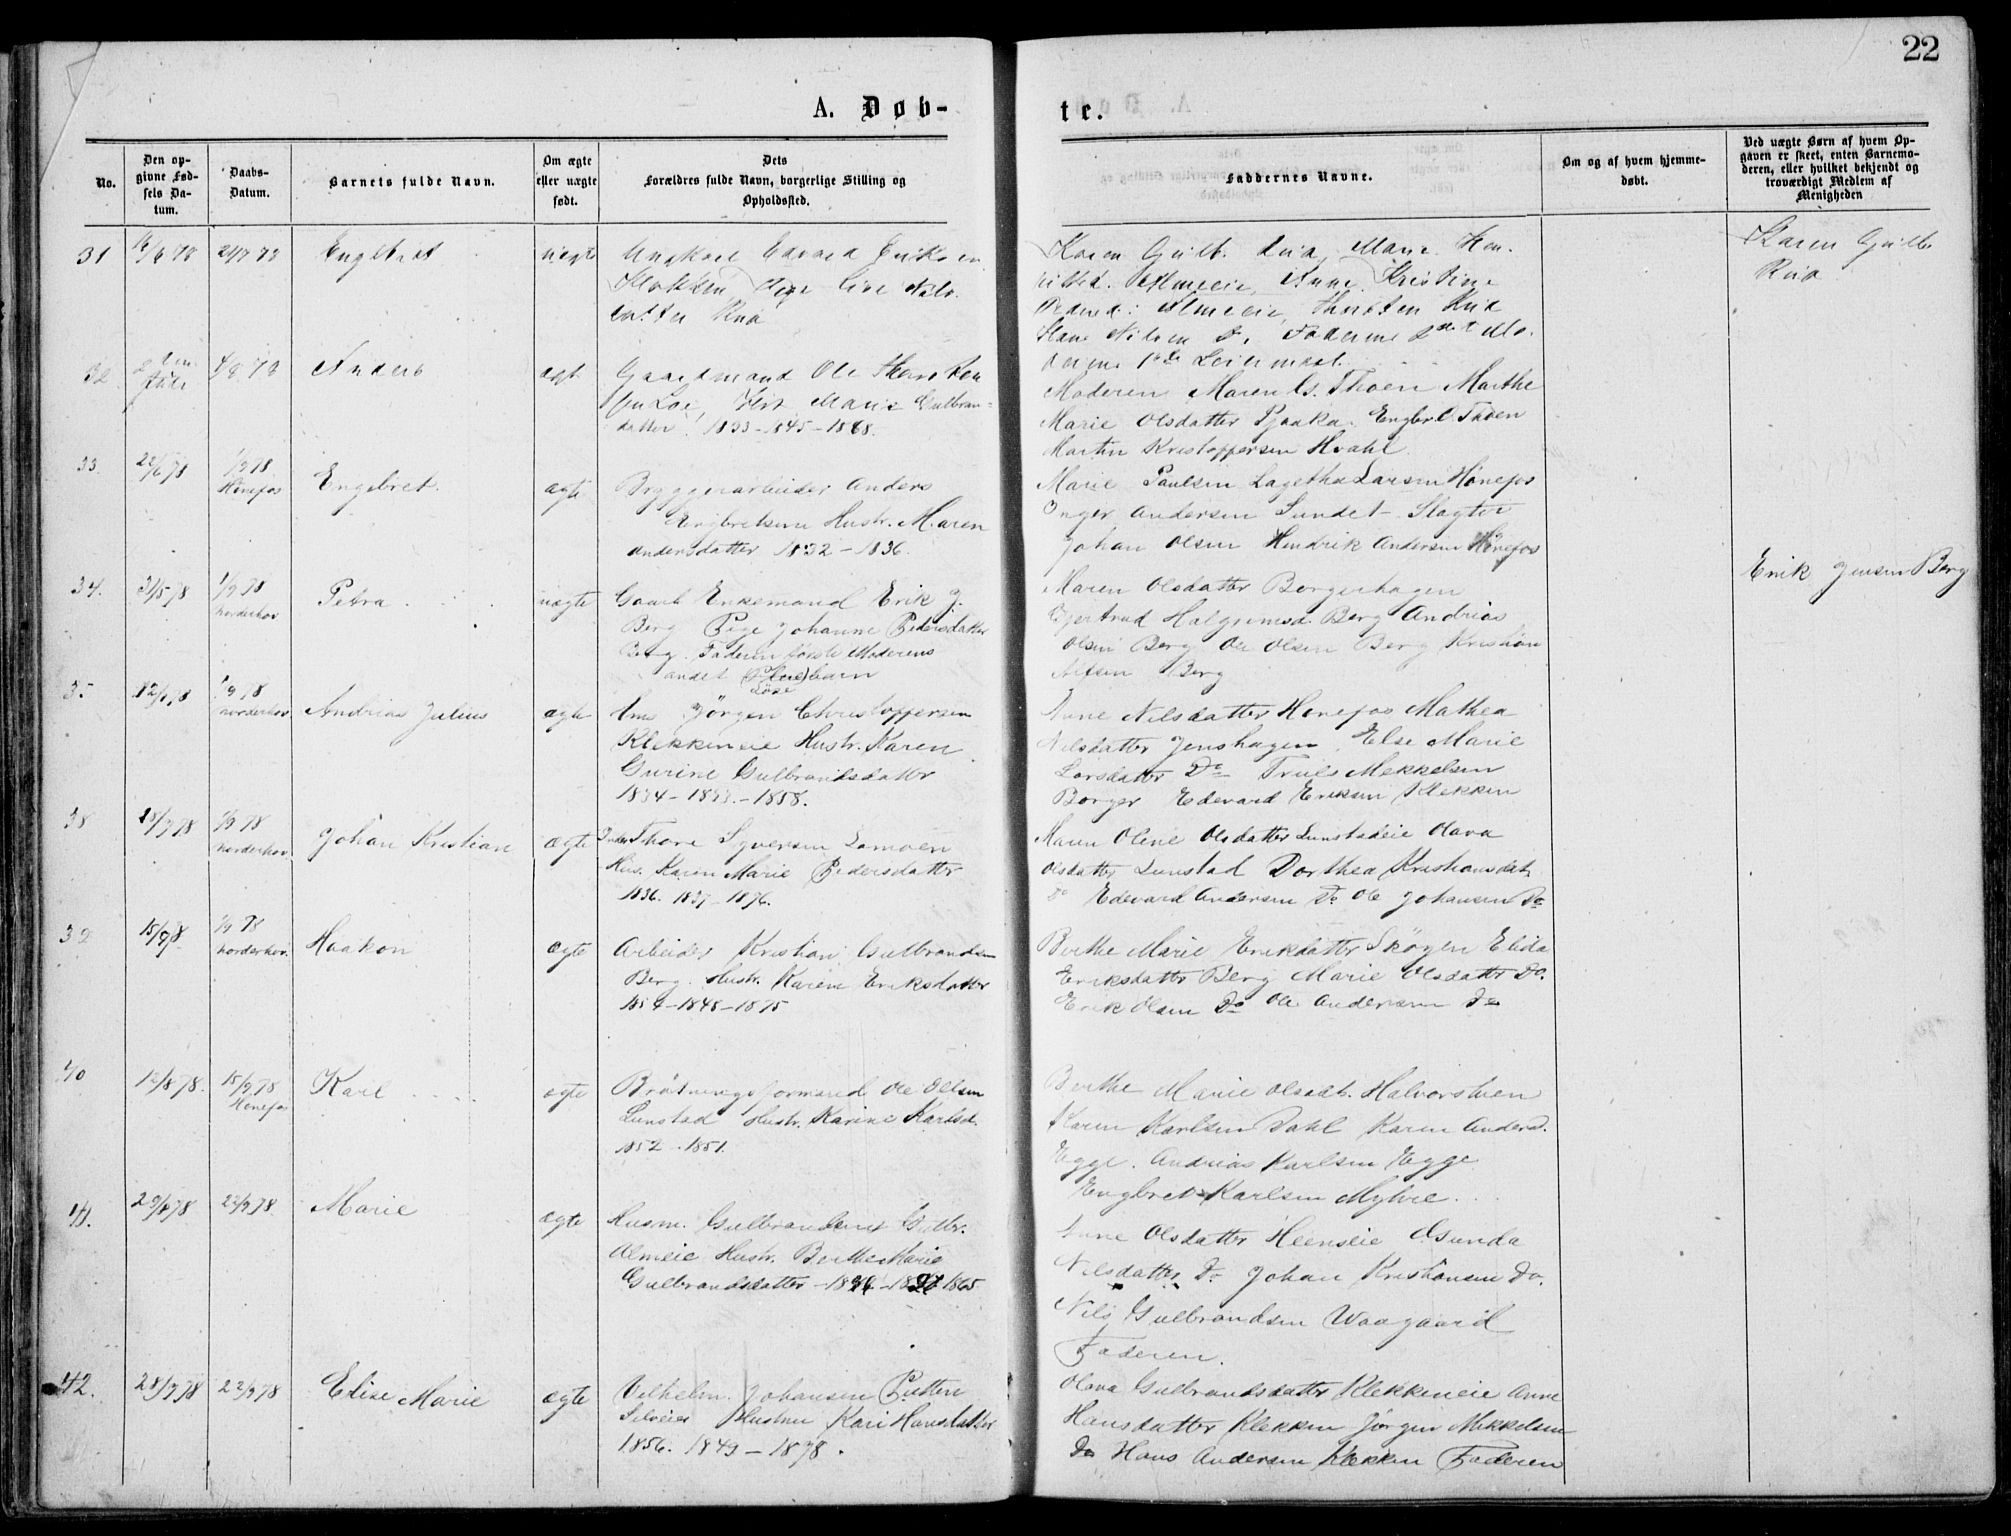 22
A. Døb-
te.
No.
Den op-
givne Fød-
sels Da-
tum.
Daabs-
Datum.
Barnets fulde Navn.
Om ægte
eller uægte
født.
Dets
Forældres fulde Navn, borgerlige Stilling og
Opholdssted.
Faddernes Navne.
Om og af hvem hjemme-
døbt.
Ved uægte Børn af hvem Op-
gaven er skeet, enten Barnemo-
deren, eller hvilket bekjendt og
troværdigt Medlem af
Menigheden
31
Engebret
uægte
Ungkarl Edvard Eriksen
Klekken Pige Live
Karen Gulb. Marie
Almeie, Anne Kristine
Almeie,
Hans Nilsen Faderens 2det Mo-
derens 1ste Leiermaal.
Karen Gulb.
32
Anders
ægte
Gaardmand Ole
Hst. Marie Gulbran-
datter 1833-1845-1868.
Moderen Maren G. Thoen Marthe
Marie Olsdatter Engbret
Martin Kristoffersen Hvahl
33.
22/6 78
1/9 78
Hønefos
Engebret.
ægte
Bryggeriarbeider Anders
Engbretsen Hustr. Maren
Andersdatter 1832-1836.
Marie Paulsen Lagetha Larsen Hønefos
Inger Andersen Sundet Slagter
Johan Olsen Hendrik Andersen Hønefos
34.
31/5 78
1/9 78
Norderhov
Petra
uægte
Gaard Enkemand Erik J.
Berg Pige Johanne Pedersdatter
Berg. Faderen første Moderens
andet barn
Maren Olsdatter Borgerhagen
Gjertrud Halgrimsd. Berg Andrias
Olsen Berg Ole Olsen Berg Kristian
Nilsen Berg
Erik Jensen Berg
35
1/9 78
Norderhov
Andrias Julius
ægte
Jørgen Christoffersen
Klekkeneie Hustr. Karen
Gurine Gulbrandsdatter
1834-1833.-1858.
Anne Nilsdatter Hønefos Mathea
Nilsdatter Jenshagen, Else Marie
Larsdatter Do Truls Mekkelsen
Borger Edevard Eriksen Klekken
38
1/9 78
Norderhov
Johan Kristian
ægte
Thore Syversen Lamoen
Hus. Karen Marie Pedersdatter
1836. 1837 1876.
Maren Oline Olsdatter Lunstadeie Olava
Olsdatter Lunstad Dorthea Kristiansdat
Do Edevard Andersen Do Ole Johansen Do
39
1/9 78
Norderhov.
Haakon
ægte
Arbeider Kristian Gulbrandsen
Berg. Hustr. Karen Eriksdatter
1854-1848-1875
Berthe Marie Eriksdatter Skøyen Elida
Eriksdatter Berg Marie Olsdatter Do.
Erik Olsen Do Ole Andersen Do
40
12/8 78.
15/9 78
Hønefos
Karl
ægte
Brøtningsformand Ole Olsen
Lunstad Hustr. Karine Karlsd.
1852-1851.
Berthe Marie Olsdat. Halvorstuen
Karen Karlsen Dahl Karen Anders.
Egge. Andrias Karlsen Egge
Engbret Karlsen Mylrie
41.
22/9 78.
Marie
ægte
Husm. Gulbrand
Almeie Hustr. Berthe Marie
Gulbrandsdatter 1865
Anne Olsdatter Heenseie Asunda
Nilsdatter Do Johan Kristiansen Do.
Nils Gulbrandsen Waagaard
Faderen.
42.
28/7 78
22/9 78
Elise Marie
ægte
Vilhelm Johansen Putten
Selveier Hustru Kari Hansdatter
1856. 1849-1878.
Olava Gulbrandsdatter Klekkeneie Anne
Hansdatter Klekken Jørgen Mikkelsen
Do Hans Andersen Klekken Faderen